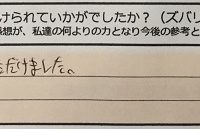 けられていかがでしたか？（ズバリ
感想が、私達の何よりの力となり今後の参考と
ただけました。